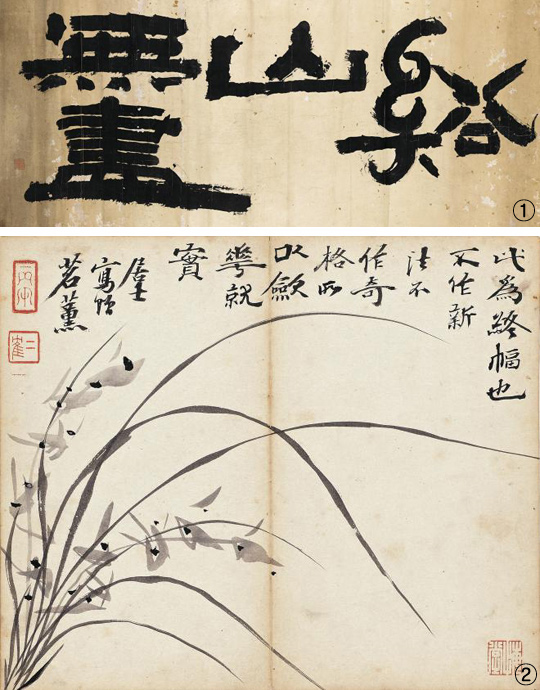 谿山無盡
①
此為終幅也
不作新
法不
作奇
格所
以歛
華就
實
居士
寫贈
茗薰
②